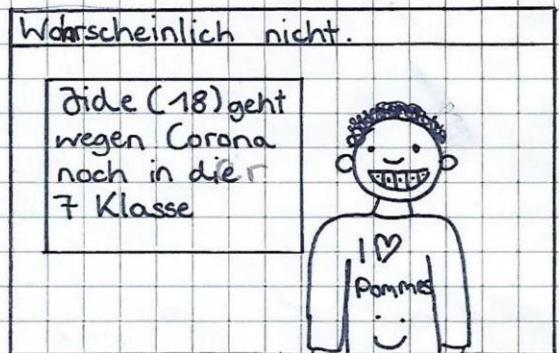 Wahrscheinlich nicht.
Jide (18) geht
wegen Corona
noch in die
7 Klasse
I ♡
Pommes